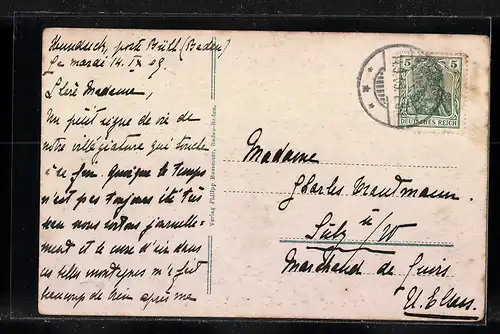 Hundseck, poste Bühl (Baden)
Ce mardi 14. IX 09.
Chère Madame,
Un petit signe de vie de
notre villégiature qui touche
à sa fin. Quoique le temps
n'est pas toujours été très
beau nous sortons journelle-
ment et la cure d'air dans
ces belles montagnes m'a fait
beaucoup de bien après ma
Verlag Philipp Bussemer, Baden-Baden.
5 5
DEUTSCHES REICH
Madame
Charles Trautmann
Sulz u/W
Marchand de Cuirs
U. Elsass.